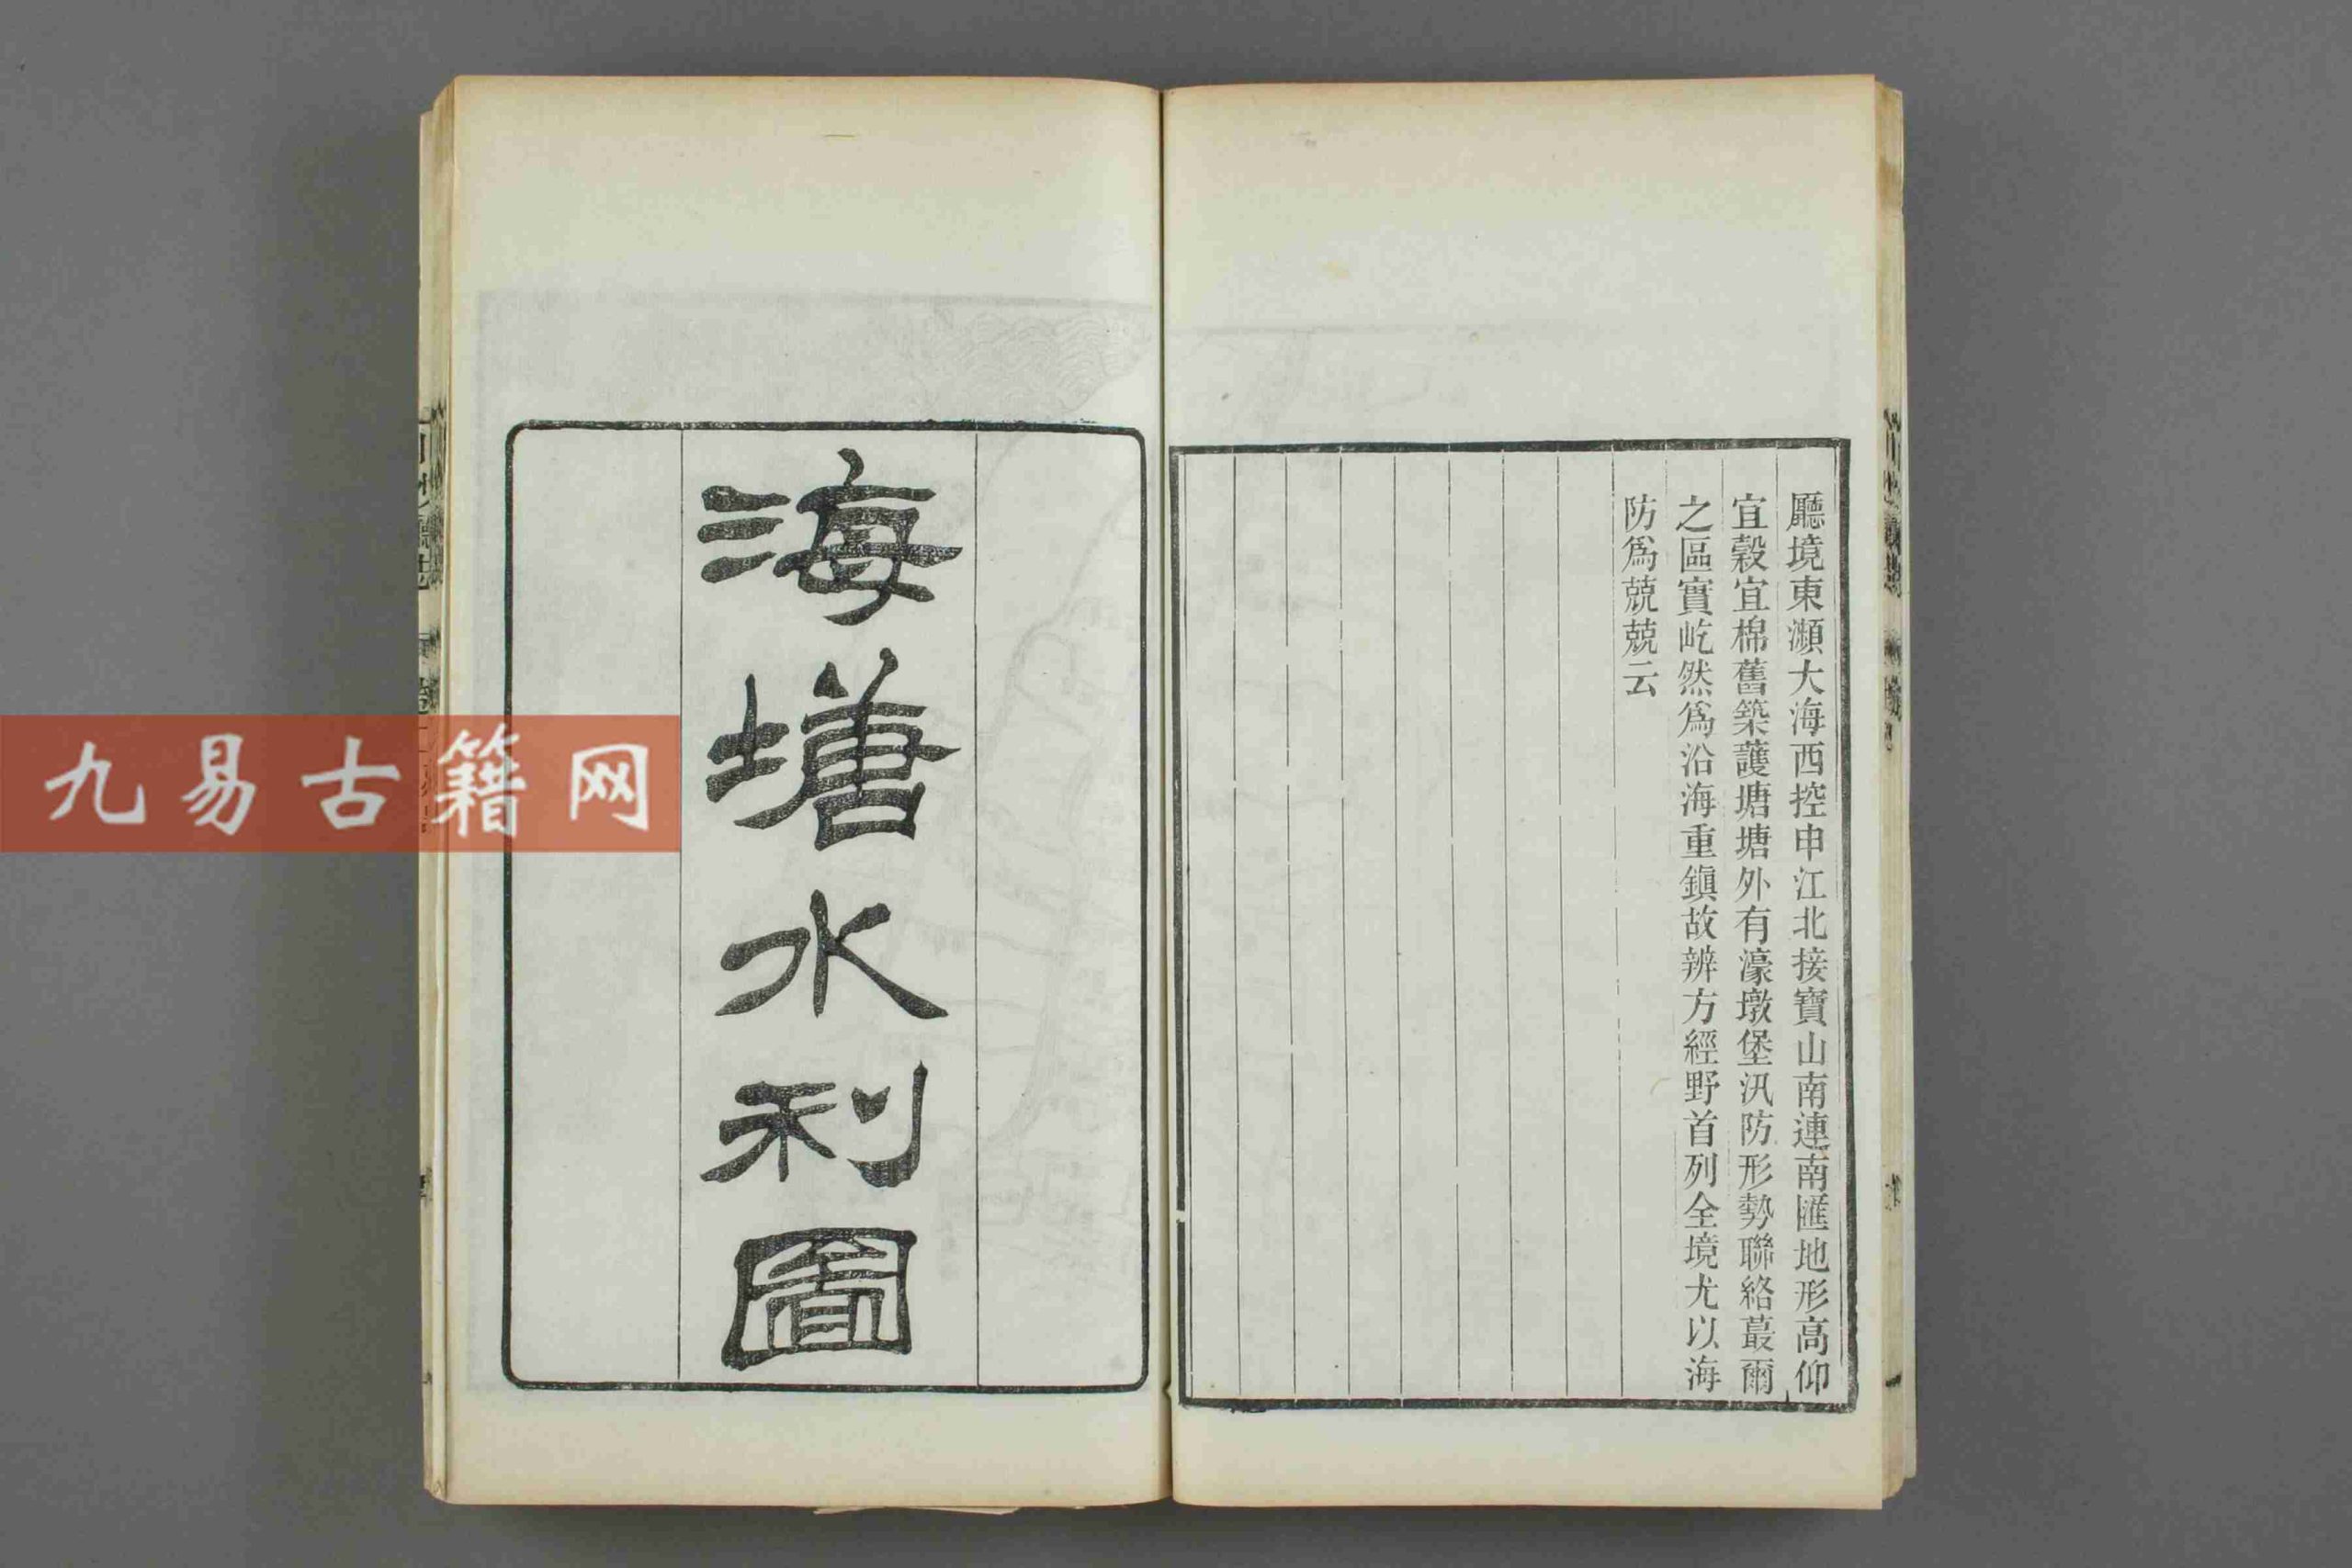 廳境東瀕大海西控申江北接寶山南連南匯地形高仰
宜穀宜棉舊築護塘塘外有濠墩堡汛防形勢聯絡蕞爾
之區實屹然為沿海重鎮故辨方經野首列全境尤以海
防為兢兢云
海塘水利圖
九易古籍网